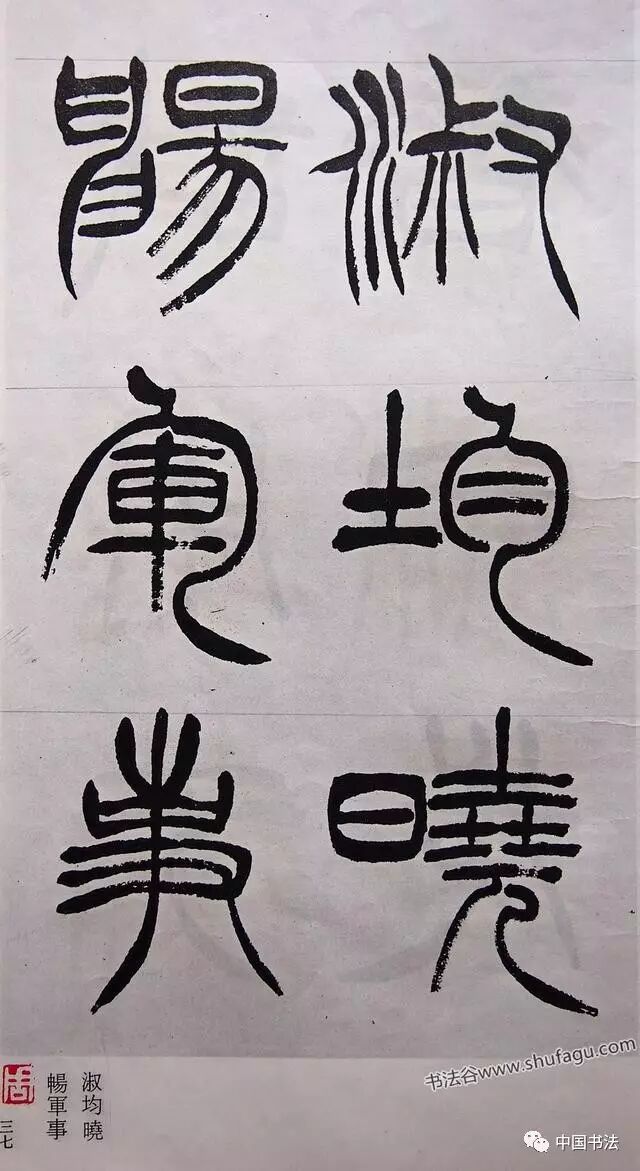 淑均曉
暢軍事
淑均曉
暢軍事
三七
书法谷www.shufagu.com
中国书法